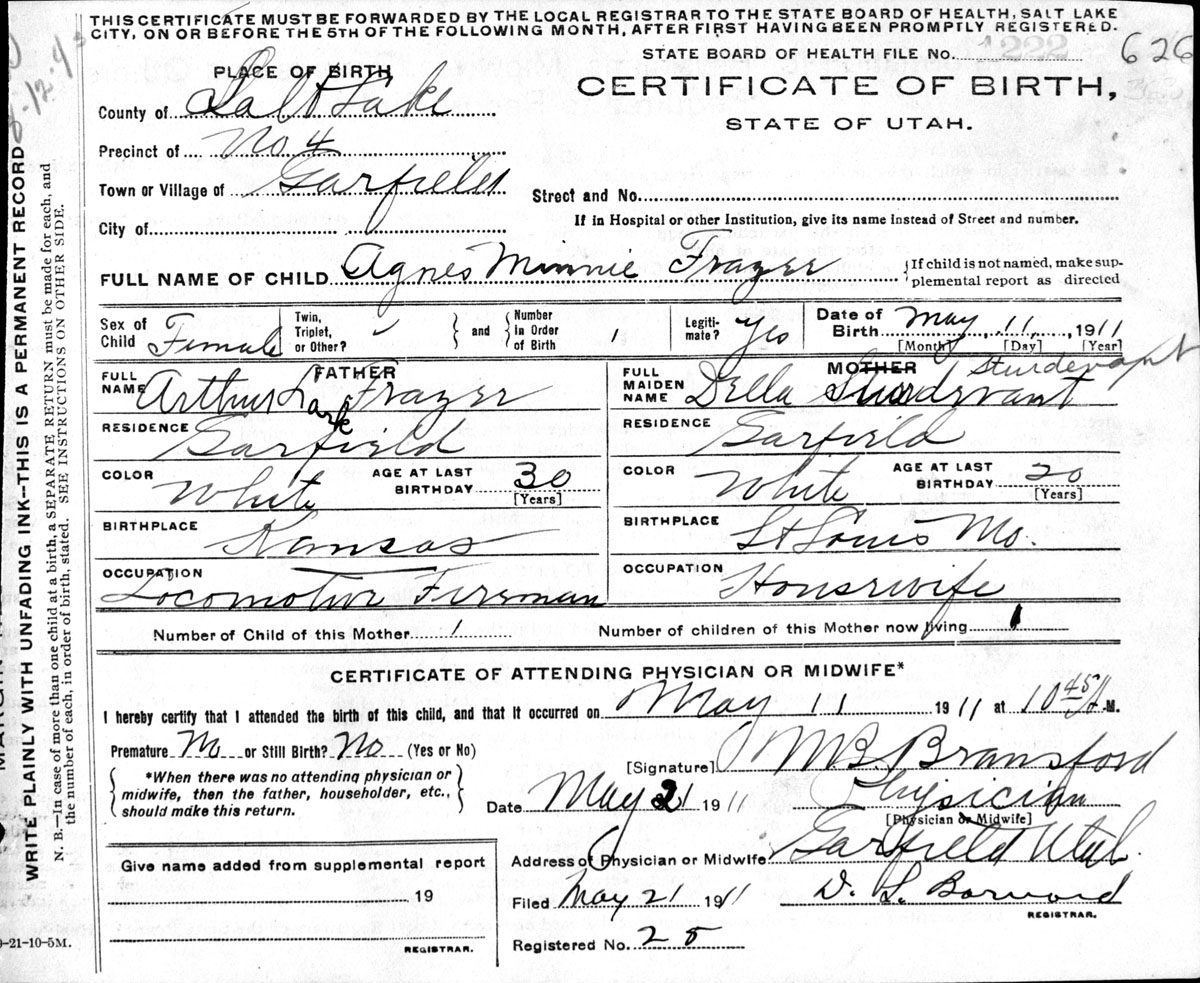 THIS CERTIFICATE MUST BE FORWARDED BY THE LOCAL REGISTRAR TO THE STATE BOARD OF HEALTH, SALT LAKE
CITY, ON OR BEFORE THE 5TH OF THE FOLLOWING MONTH, AFTER FIRST HAVING BEEN PROMPTLY REGISTERED.
STATE BOARD OF HEALTH FILE No. 1222 626
CERTIFICATE OF BIRTH,
STATE OF UTAH.
PLACE OF BIRTH
County of Salt Lake
Precinct of No 4
Town or Village of Garfield
Street and No.
City of
If in Hospital or other Institution, give its name instead of Street and number.
FULL NAME OF CHILD Agnes Minnie Frazer
If child is not named, make sup-
plemental report as directed
Sex of Child Female
Twin, Triplet, or Other?
and
Number In Order of Birth 1
Legiti-mate? Yes
Date of Birth May 11, 1911
[Month] [Day] [Year]
FATHER
FULL NAME Arthur Lark Frazer
RESIDENCE Garfield
COLOR White
AGE AT LAST BIRTHDAY 30
[Years]
BIRTHPLACE Kansas
OCCUPATION Locomotive Fireman
MOTHER
Sturdevant
FULL MAIDEN NAME Della Sturdevant
RESIDENCE Garfield
COLOR White
AGE AT LAST BIRTHDAY 20
[Years]
BIRTHPLACE St Louis Mo.
OCCUPATION Housewife
Number of Child of this Mother 1
Number of children of this Mother now living 1
CERTIFICATE OF ATTENDING PHYSICIAN OR MIDWIFE*
I hereby certify that I attended the birth of this child, and that it occurred on May 11 1911 at 10 45 A.M.
Premature No or Still Birth? No (Yes or No)
*When there was no attending physician or
midwife, then the father, householder, etc.,
should make this return.
[Signature] M B. Bransford
Date May 21 1911
Physician
[Physician or Midwife]
Address of Physician or Midwife Garfield Utah.
Give name added from supplemental report
19
REGISTRAR.
Filed May 21 1911
D. L. Barnard
REGISTRAR.
Registered No. 25
9-21-10-5M.
WRITE PLAINLY WITH UNFADING INK—THIS IS A PERMANENT RECORD
N. B.—In case of more than one child at a birth, a SEPARATE RETURN must be made for each, and
the number of each, in order of birth, stated. SEE INSTRUCTIONS ON OTHER SIDE.